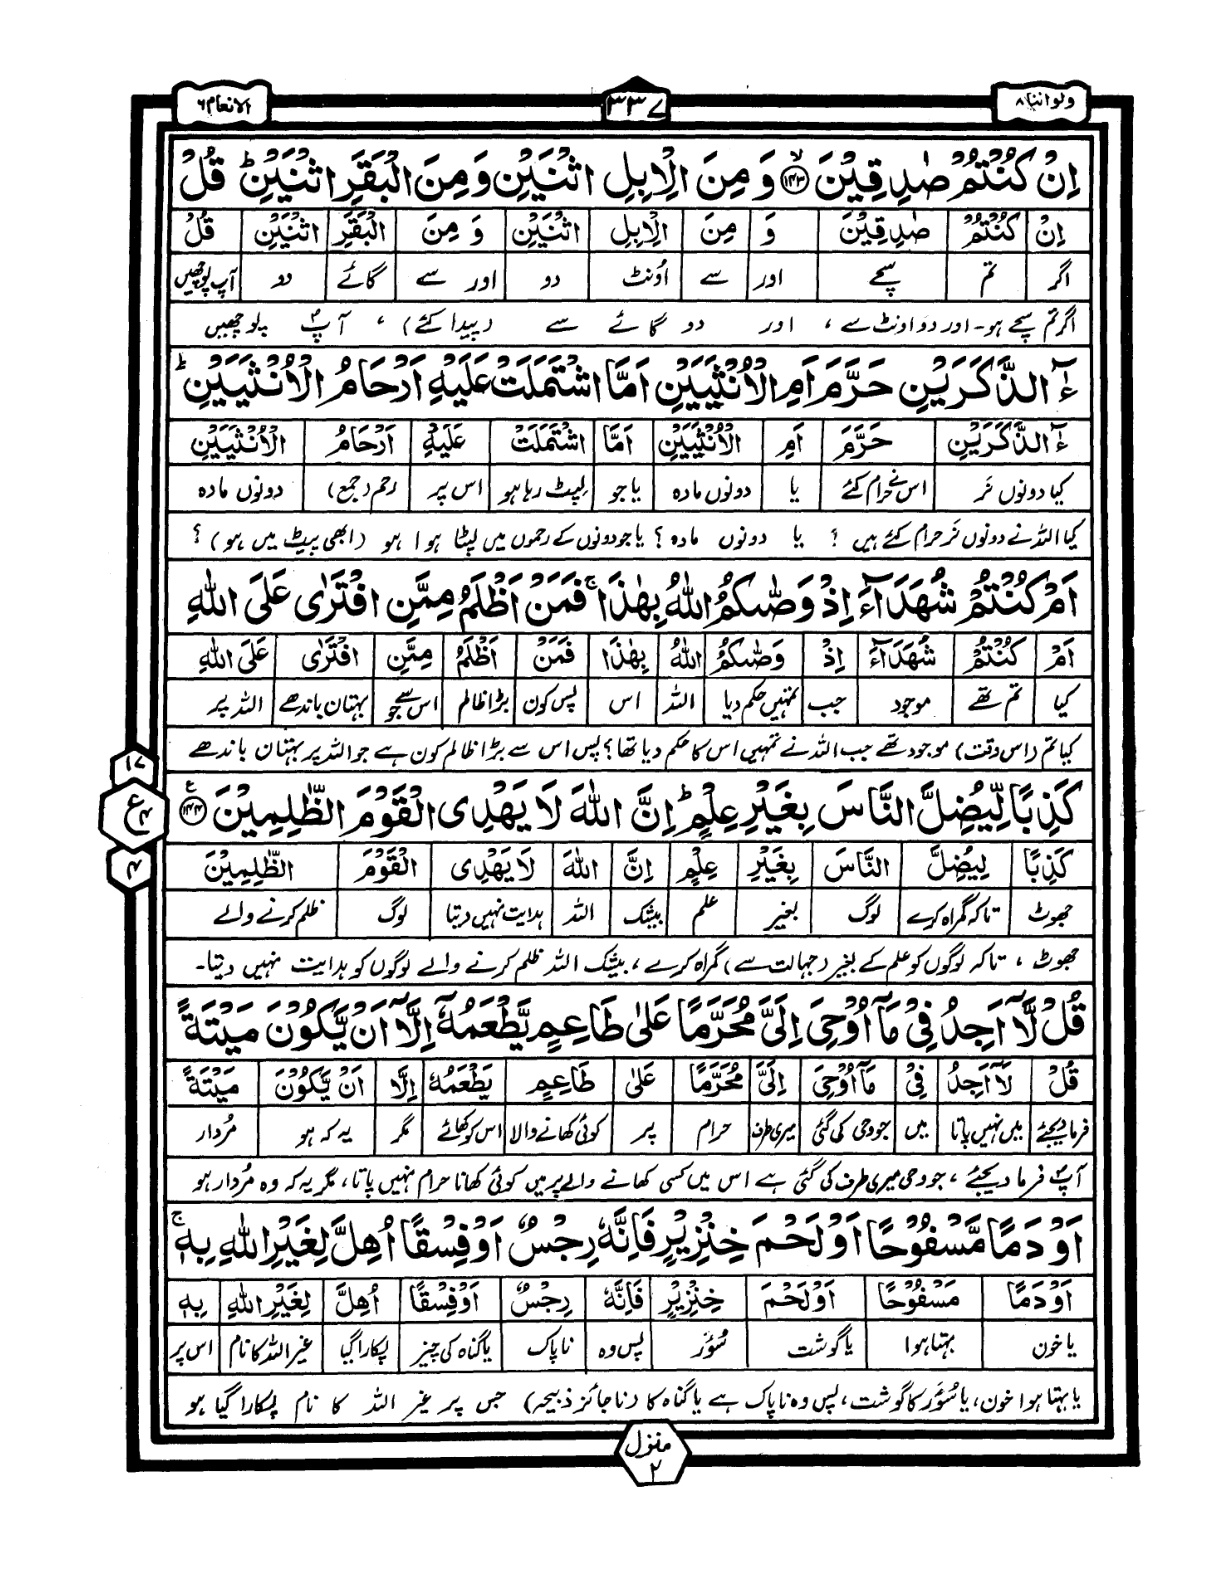 ولواننا ۸
۳۳۷
الانعام ۶
اِنْ كُنْتُمْ صٰدِقِيْنَ ﴿۱۴۳﴾ۙ وَ مِنَ الْاِبِلِ اثْنَيْنِ وَ مِنَ الْبَقَرِ اثْنَيْنِ ؕ قُلْ
اِنْ كُنْتُمْ صٰدِقِيْنَ وَ مِنَ الْاِبِلِ اثْنَيْنِ وَ مِنَ الْبَقَرِ اثْنَيْنِ قُلْ
اگر تم سچے اور سے اُونٹ دو اور سے گائے دو آپ پوچھیں
اگر تم سچے ہو۔ اور دو اونٹ سے ، اور دو گائے سے (پیدا کئے) ، آپؐ پوچھیں
ءٰٓالذَّكَرَيْنِ حَرَّمَ اَمِ الْاُنْثَيَيْنِ اَمَّا اشْتَمَلَتْ عَلَيْهِ اَرْحَامُ الْاُنْثَيَيْنِ ؕ
ءٰٓالذَّكَرَيْنِ حَرَّمَ اَمِ الْاُنْثَيَيْنِ اَمَّا اشْتَمَلَتْ عَلَيْهِ اَرْحَامُ الْاُنْثَيَيْنِ
کیا دونوں نَر اس نے حرام کئے یا دونوں مادہ یا جو لپٹ رہا ہو اس پر رحم (جمع) دونوں مادہ
کیا اللہ نے دونوں نَر حرام کئے ہیں ؟ یا دونوں مادہ ؟ یا جو دونوں کے رحموں میں لپٹا ہوا ہو (ابھی پیٹ میں ہو) ؟
اَمْ كُنْتُمْ شُهَدَآءَ اِذْ وَصّٰىكُمُ اللّٰهُ بِهٰذَا ۚ فَمَنْ اَظْلَمُ مِمَّنِ افْتَرٰى عَلَى اللّٰهِ
اَمْ كُنْتُمْ شُهَدَآءَ اِذْ وَصّٰىكُمُ اللّٰهُ بِهٰذَا فَمَنْ اَظْلَمُ مِمَّنِ افْتَرٰى عَلَى اللّٰهِ
کیا تم تھے موجود جب تمہیں حکم دیا اللہ اس پس کون بڑا ظالم اس سے جو بہتان باندھے اللہ پر
کیا تم (اس وقت) موجود تھے جب اللہ نے تمہیں اس کا حکم دیا تھا؟ پس اس سے بڑا ظالم کون ہے جو اللہ پر بہتان باندھے
كَذِبًا لِّيُضِلَّ النَّاسَ بِغَيْرِ عِلْمٍ ؕ اِنَّ اللّٰهَ لَا يَهْدِى الْقَوْمَ الظّٰلِمِيْنَ ﴿۱۴۴﴾ۧ
۱۷
ع ۴
۴
كَذِبًا لِيُضِلَّ النَّاسَ بِغَيْرِ عِلْمٍ اِنَّ اللّٰهَ لَا يَهْدِى الْقَوْمَ الظّٰلِمِيْنَ
جھوٹ تاکہ گمراہ کرے لوگ بغیر علم بیشک اللہ ہدایت نہیں دیتا لوگ ظلم کرنے والے
جھوٹ ، تاکہ لوگوں کو علم کے بغیر (جہالت سے) گمراہ کرے ، بیشک اللہ ظلم کرنے والے لوگوں کو ہدایت نہیں دیتا۔
قُلْ لَّاۤ اَجِدُ فِىْ مَاۤ اُوْحِىَ اِلَىَّ مُحَرَّمًا عَلٰى طَاعِمٍ يَّطْعَمُهٗۤ اِلَّاۤ اَنْ يَّكُوْنَ مَيْتَةً
قُلْ لَاۤ اَجِدُ فِىْ مَاۤ اُوْحِىَ اِلَىَّ مُحَرَّمًا عَلٰى طَاعِمٍ يَطْعَمُهٗ اِلَّا اَنْ يَّكُوْنَ مَيْتَةً
فرمادیجئے میں نہیں پاتا میں جو وحی کی گئی میری طرف حرام پر کوئی کھانے والا اس کو کھائے مگر یہ کہ ہو مُردار
آپؐ فرما دیجئے ، جو وحی میری طرف کی گئی ہے اس میں کسی کھانے والے پر میں کوئی کھانا حرام نہیں پاتا، مگر یہ کہ وہ مُردار ہو
اَوْ دَمًا مَّسْفُوْحًا اَوْ لَحْمَ خِنْزِيْرٍ فَاِنَّهٗ رِجْسٌ اَوْ فِسْقًا اُهِلَّ لِغَيْرِ اللّٰهِ بِهٖ ۚ
اَوْ دَمًا مَسْفُوْحًا اَوْ لَحْمَ خِنْزِيْرٍ فَاِنَّهٗ رِجْسٌ اَوْ فِسْقًا اُهِلَّ لِغَيْرِ اللّٰهِ بِهٖ
یا خون بہتا ہوا یا گوشت سُوَر پس وہ ناپاک یا گناہ کی چیز پکارا گیا غیر اللہ کا نام اس پر
یا بہتا ہوا خون، یا سُوَر کا گوشت، پس وہ ناپاک ہے یا گناہ کا (ناجائز ذبیحہ) جس پر غیر اللہ کا نام پکارا گیا ہو
منزل ۲